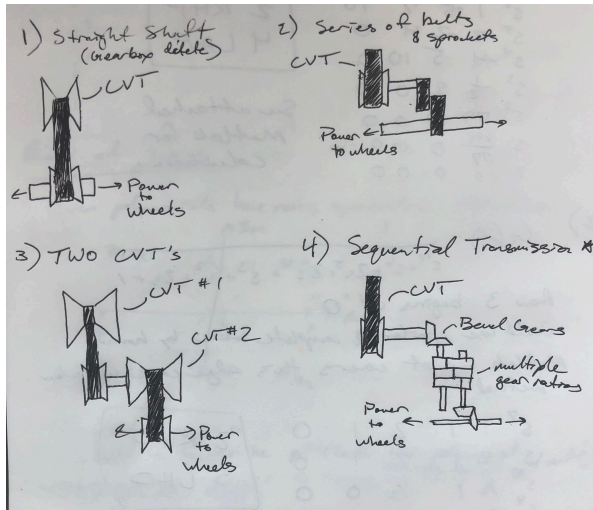 1) Straight Shaft
(Gearbox delete)
CVT
Power
to
wheels
2) Series of belts
& sprockets
CVT
Power
to wheels
3) TWO CVT's
CVT #1
CVT #2
Power
to
wheels
4) Sequential Transmission
CVT
Bevel Gears
multiple
gear ratios
Power
to
wheels